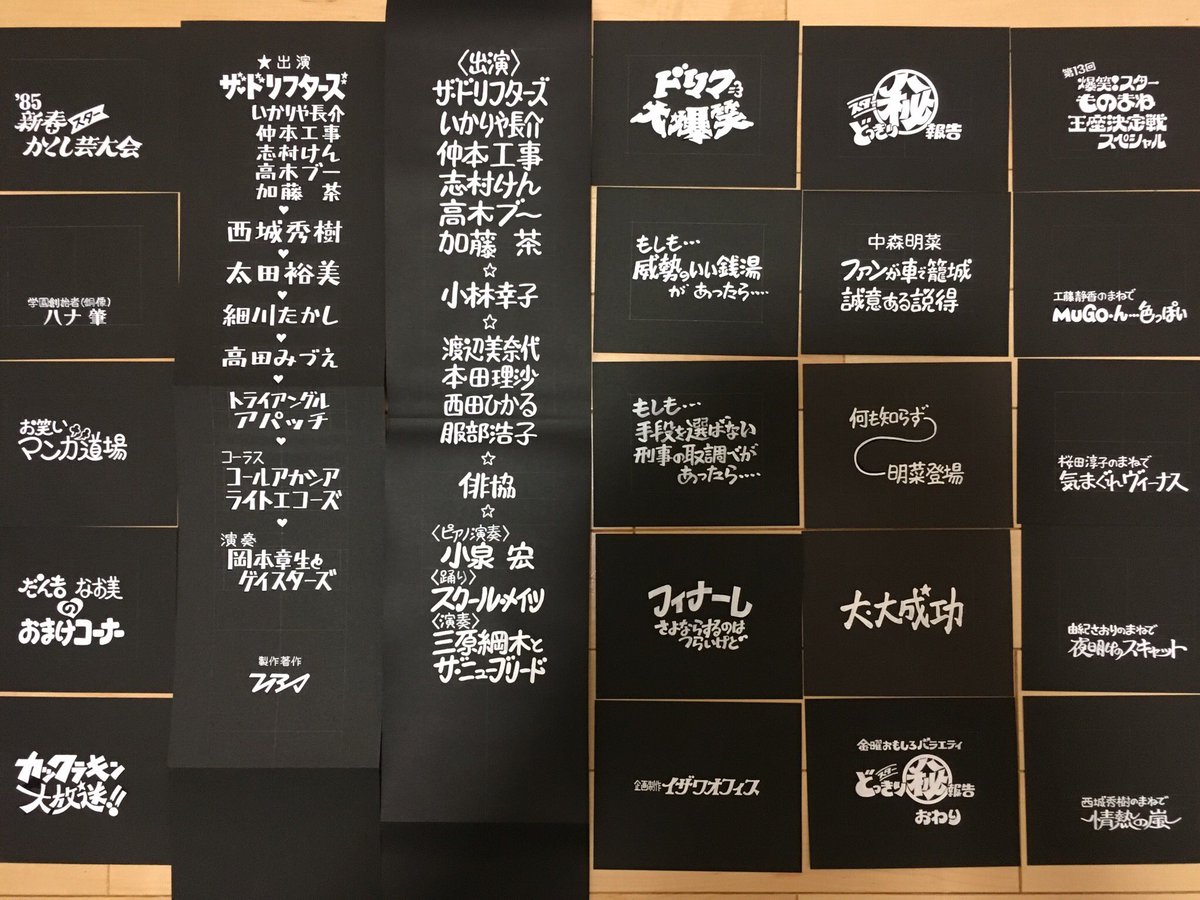 '85
新春スター
かくし芸大会
学園創始者(銅像)
ハナ 肇
お笑い
マンガ道場
だん吉 なお美
の
おまけコーナー
カックラキン
大放送!!
★出演
ザ・ドリフターズ
いかりや長介
仲本工事
志村けん
高木ブー
加藤 茶
♥
西城秀樹
♥
太田裕美
♥
細川たかし
♥
高田みづえ
♥
トライアングル
アパッチ
♥
コーラス
コールアカシア
ライトエコーズ
♥
演奏
岡本章生と
ゲイスターズ
製作著作
TBS
〈出演〉
ザ・ドリフターズ
いかりや長介
仲本工事
志村けん
高木ブ～
加藤 茶
☆
小林幸子
☆
渡辺美奈代
本田理沙
西田ひかる
服部浩子
☆
俳協
☆
〈ピアノ演奏〉
小泉 宏
〈踊り〉
スクール・メイツ
〈演奏〉
三原綱木と
ザ・ニューブリード
ドリフ
大爆笑
もしも…
威勢のいい銭湯
があったら‥‥
もしも…
手段を選ばない
刑事の取調べが
あったら‥‥
フィナーレ
さよならするのは
つらいけど
企画制作 イザワオフィス
スター
どっきり㊙報告
中森明菜
ファンが車で籠城
誠意ある説得
何も知らず
明菜登場
大大成功
金曜おもしろバラエティ
スター
どっきり㊙報告
おわり
第13回
爆笑!スター
ものまね
王座決定戦
スペシャル
工藤静香のまねで
MUGO・ん…色っぽい
桜田淳子のまねで
気まぐれヴィーナス
由紀さおりのまねで
夜明けのスキャット
西城秀樹のまねで
情熱の嵐